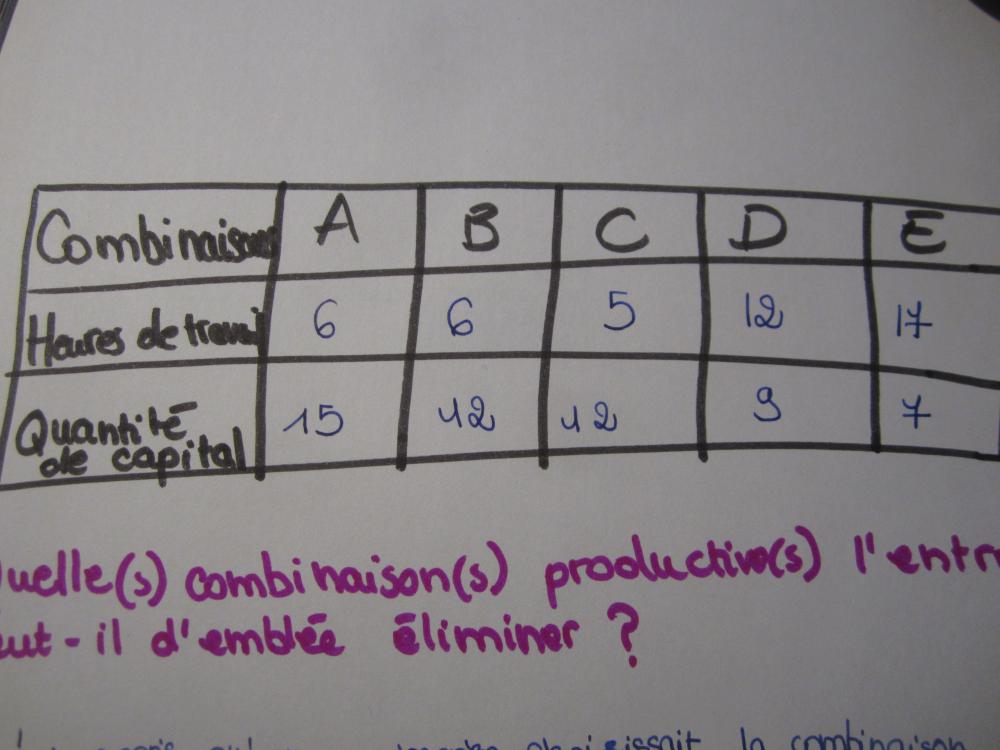 Combinaisons A B C D E
Heures de travail 6 6 5 12 17
Quantité 15 12 12 9 7
de capital
uelle(s) combinaison(s) productive(s) l'entr
eut-il d'emblée éliminer ?
choisissait la combinaison